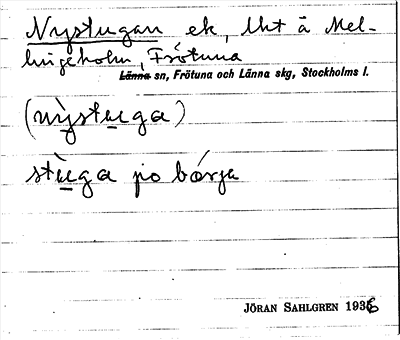 Nystugan ek, Uht å Mel-
lingeholm, Frötuna
Länna sn, Frötuna och Länna skg, Stockholms l.
(nỳstu̲ga)
stù̲ga po bórja
JÖRAN SAHLGREN 1936